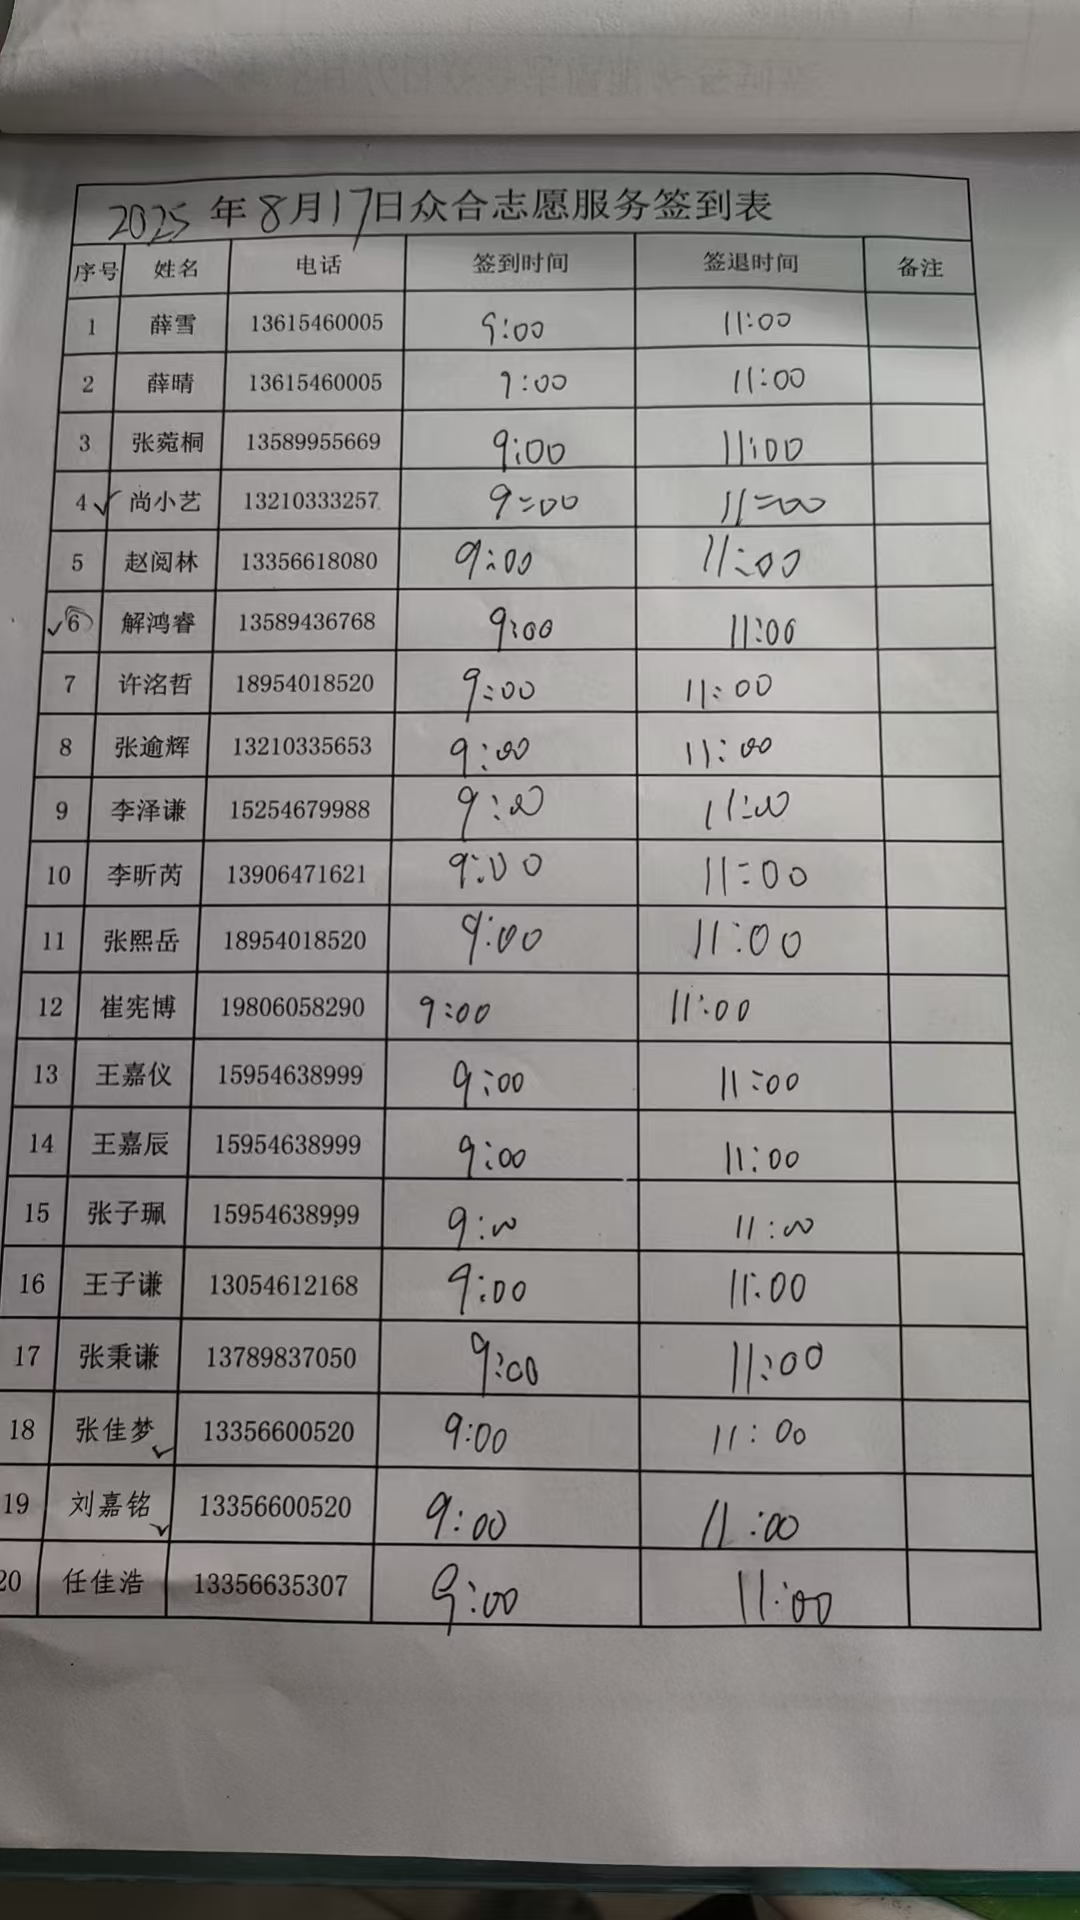 2025年8月17日众合志愿服务签到表
序号 姓名 电话 签到时间 签退时间 备注
1 薛雪 13615460005 9:00 11:00
2 薛晴 13615460005 9:00 11:00
3 张菀桐 13589955669 9:00 11:00
4 尚小艺 13210333257 9:00 11:00
5 赵阅林 13356618080 9:00 11:00
6 解鸿睿 13589436768 9:00 11:00
7 许洺哲 18954018520 9:00 11:00
8 张逾辉 13210335653 9:00 11:00
9 李泽谦 15254679988 9:00 11:00
10 李昕芮 13906471621 9:00 11:00
11 张熙岳 18954018520 9:00 11:00
12 崔宪博 19806058290 9:00 11:00
13 王嘉仪 15954638999 9:00 11:00
14 王嘉辰 15954638999 9:00 11:00
15 张子珮 15954638999 9:00 11:00
16 王子谦 13054612168 9:00 11:00
17 张秉谦 13789837050 9:00 11:00
18 张佳梦 13356600520 9:00 11:00
19 刘嘉铭 13356600520 9:00 11:00
20 任佳浩 13356635307 9:00 11:00